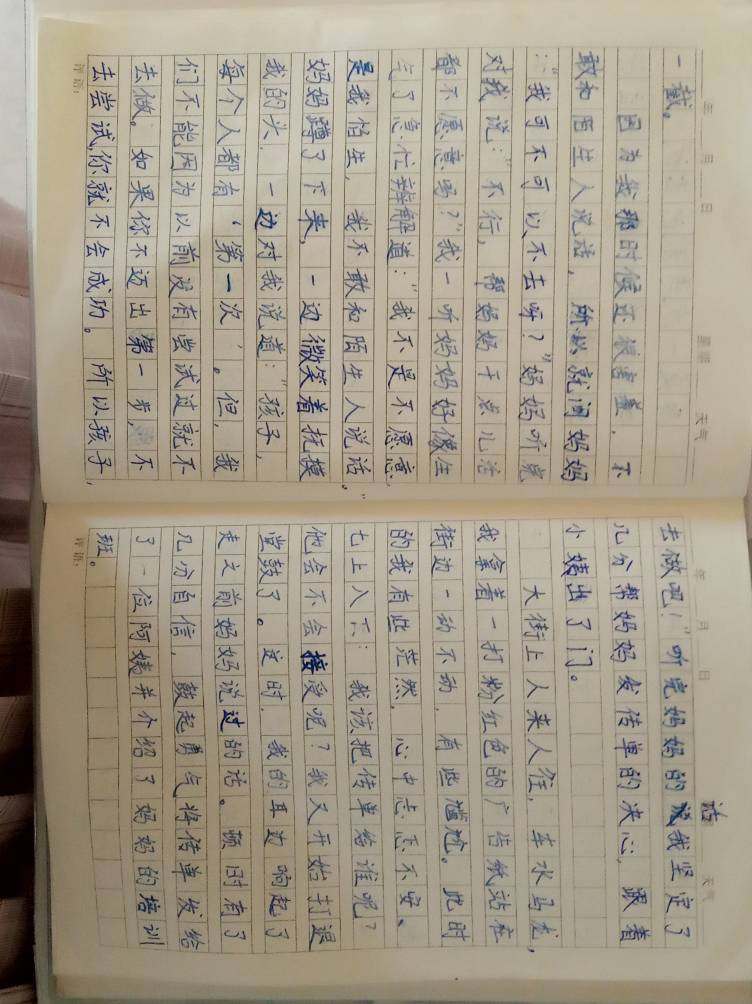 年 月 日 星期 天气
一截。
因为我那时候还很害羞,不
敢和陌生人说话,所以就问妈妈
:“我可不可以不去呀?”妈妈听完
对我说:“不行,帮妈妈干点儿活
都不愿意吗?”我一听妈妈好像生
气了急忙辩解道:“我不是不愿意,
是我怕生,我不敢和陌生人说话。”
妈妈蹲了下来,一边微笑着抚摸
我的头,一边对我说道:“孩子,
每个人都有‘第一次’。但,我
们不能因为以前没有尝试过就不
去做。如果你不迈出第一步,不
去尝试,你就不会成功。所以孩子,
评语:
年 月 日 天气
去做吧!”听完妈妈的话我坚定了
几分帮妈妈发传单的决心,跟着
小姨出了门。
大街上人来人往,车水马龙,
我拿着一打粉红色的广告纸站在
街边一动不动,有些尴尬。此时
的我有些茫然,心中忐忑不安、
七上八下:我该把传单给谁呢?
他会不会接受呢?我又开始打退
堂鼓了。这时,我的耳边响起了
走之前妈妈说过的话。顿时有了
几分自信,鼓起勇气将传单发给
了一位阿姨并介绍了妈妈的培训
班。
评语: